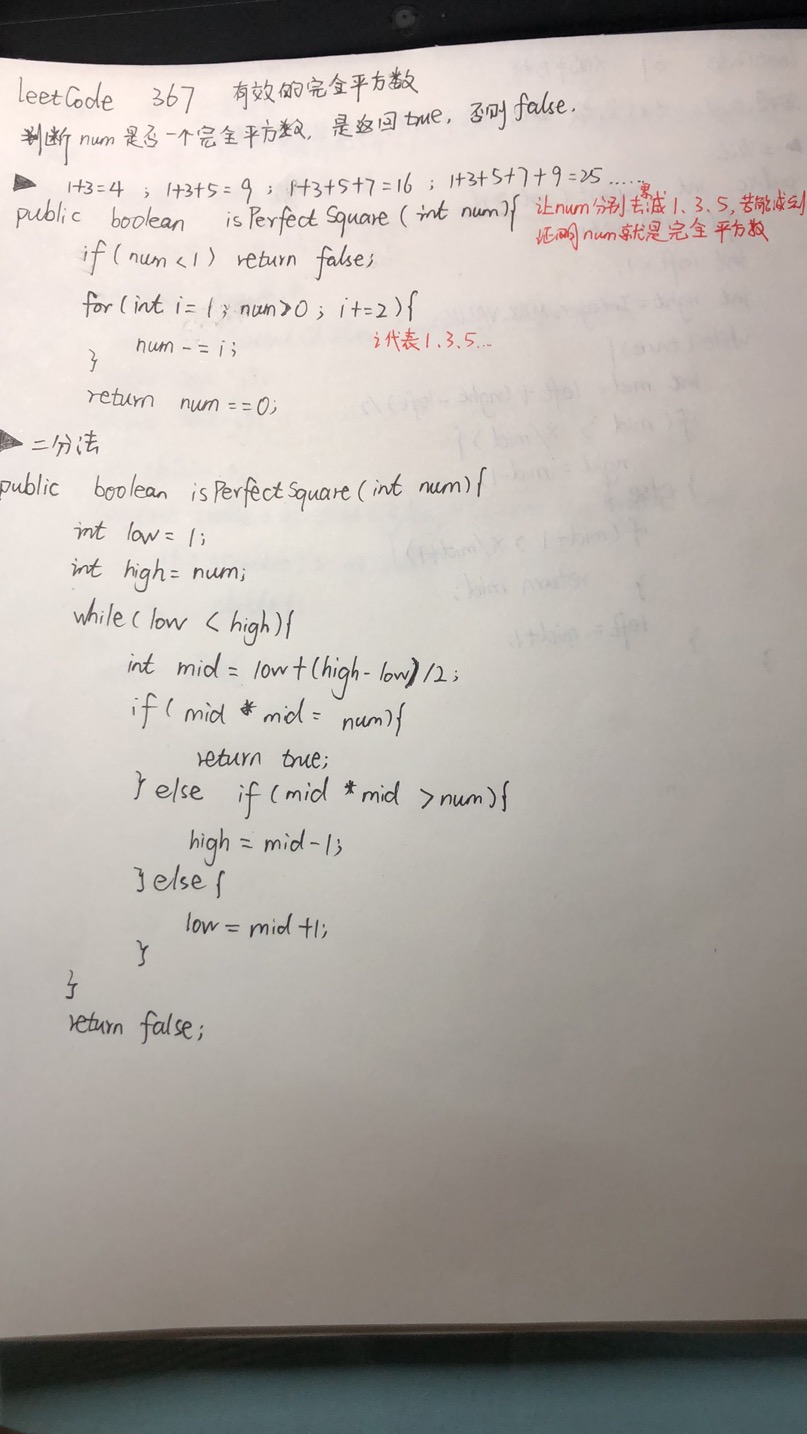 leetCode 367 有效的完全平方数
判断num是否一个完全平方数, 是返回true, 否则false.
1+3=4 ; 1+3+5=9 ; 1+3+5+7=16 ; 1+3+5+7+9=25 ......
public boolean isPerfectSquare(int num){ 让num分别去减1、3、5, 若能减到
证明num就是完全平方数
if(num<1) return false;
for(int i=1; num>0; i+=2){
num-=i; i代表1.3.5...
}
return num==0;
二分法
public boolean isPerfectSquare(int num){
int low=1;
int high=num;
while(low<high){
int mid=low+(high-low)/2;
if(mid*mid= num){
return true;
}else if(mid*mid>num){
high=mid-1;
}else{
low=mid+1;
}
}
return false;